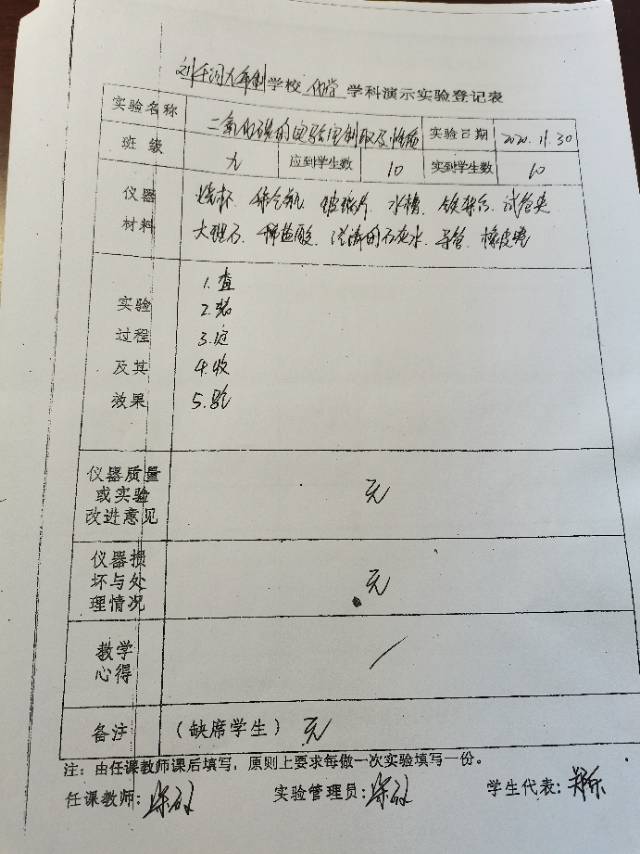 学校 化学 学科演示实验登记表
实验名称 二氧化碳的实验室制取及性质 实验日期 2020.11.30
班级 九 应到学生数 10 实到学生数 10
仪器 烧杯、集气瓶、玻璃片、水槽、铁架台、试管夹
材料 大理石、稀盐酸、澄清的石灰水、导管、橡皮塞
1.查
实验 2.装
过程 3.定
及其 4.收
效果 5.验
仪器质量
或实验 无
改进意见
仪器损
坏与处 无
理情况
教学 /
心得
备注 (缺席学生) 无
注:由任课教师课后填写,原则上要求每做一次实验填写一份。
任课教师: 实验管理员: 学生代表: